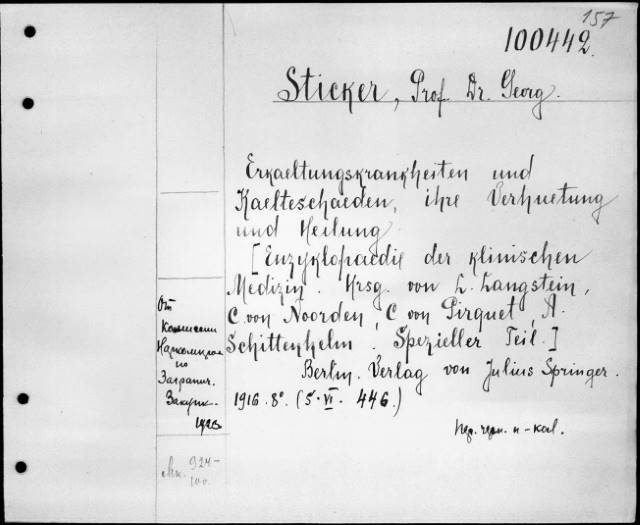 157
100442.
Sticker, Prof. Dr. Georg.
Erkaeltungskrankheiten und
Kaelteschaeden, ihre Verhuetung
und Heilung
[Enzyklopaedie der klinischen
Medizin. Hrsg. von L. Langstein,
C. von Noorden, C. von Pirquet, A.
Schittenhelm. Spezieller Teil.]
Berlin. Verlag von Julius Springer.
1916. 8°. (5. VI. 446.)
От
Комиссии
Наркомпроса
по
Загранич.
Закупк.
924-